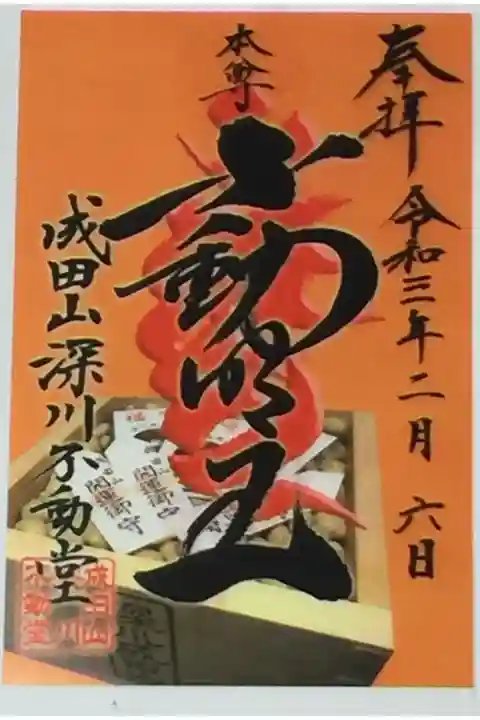 奉拝 令和三年二月 六日
本尊
不動明王
成田山深川不動堂
開運御守
開運御守
成田山
不動堂